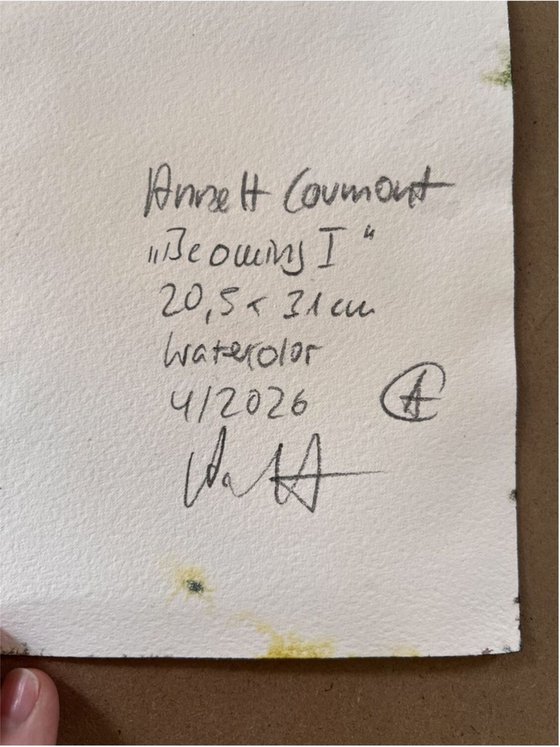 Annett Coumont
„Beoming I“
20,5 x 31 cm
Watercolor
4/2026